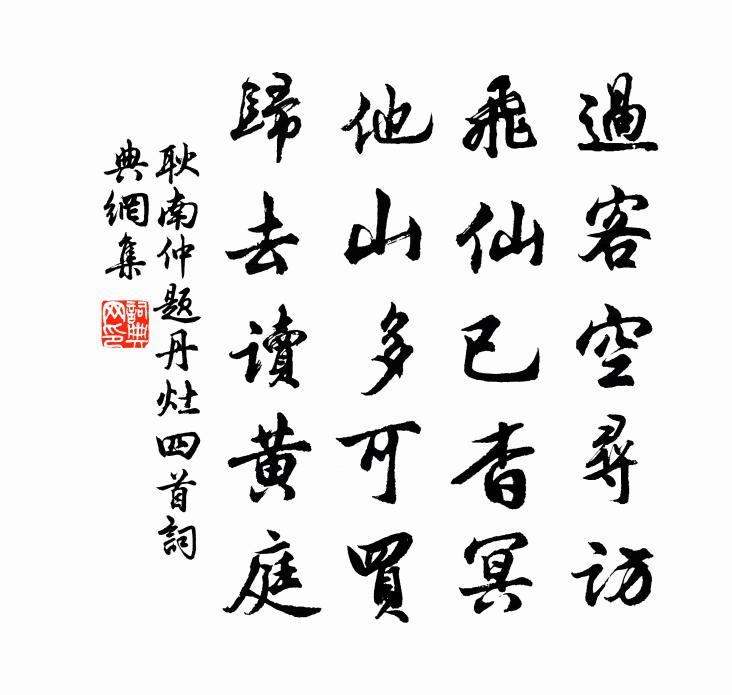 過客空尋訪
飛仙已杳冥
他山多可買
歸去讀黃庭
耿南仲題丹灶四首詞
典網集
詞典網印